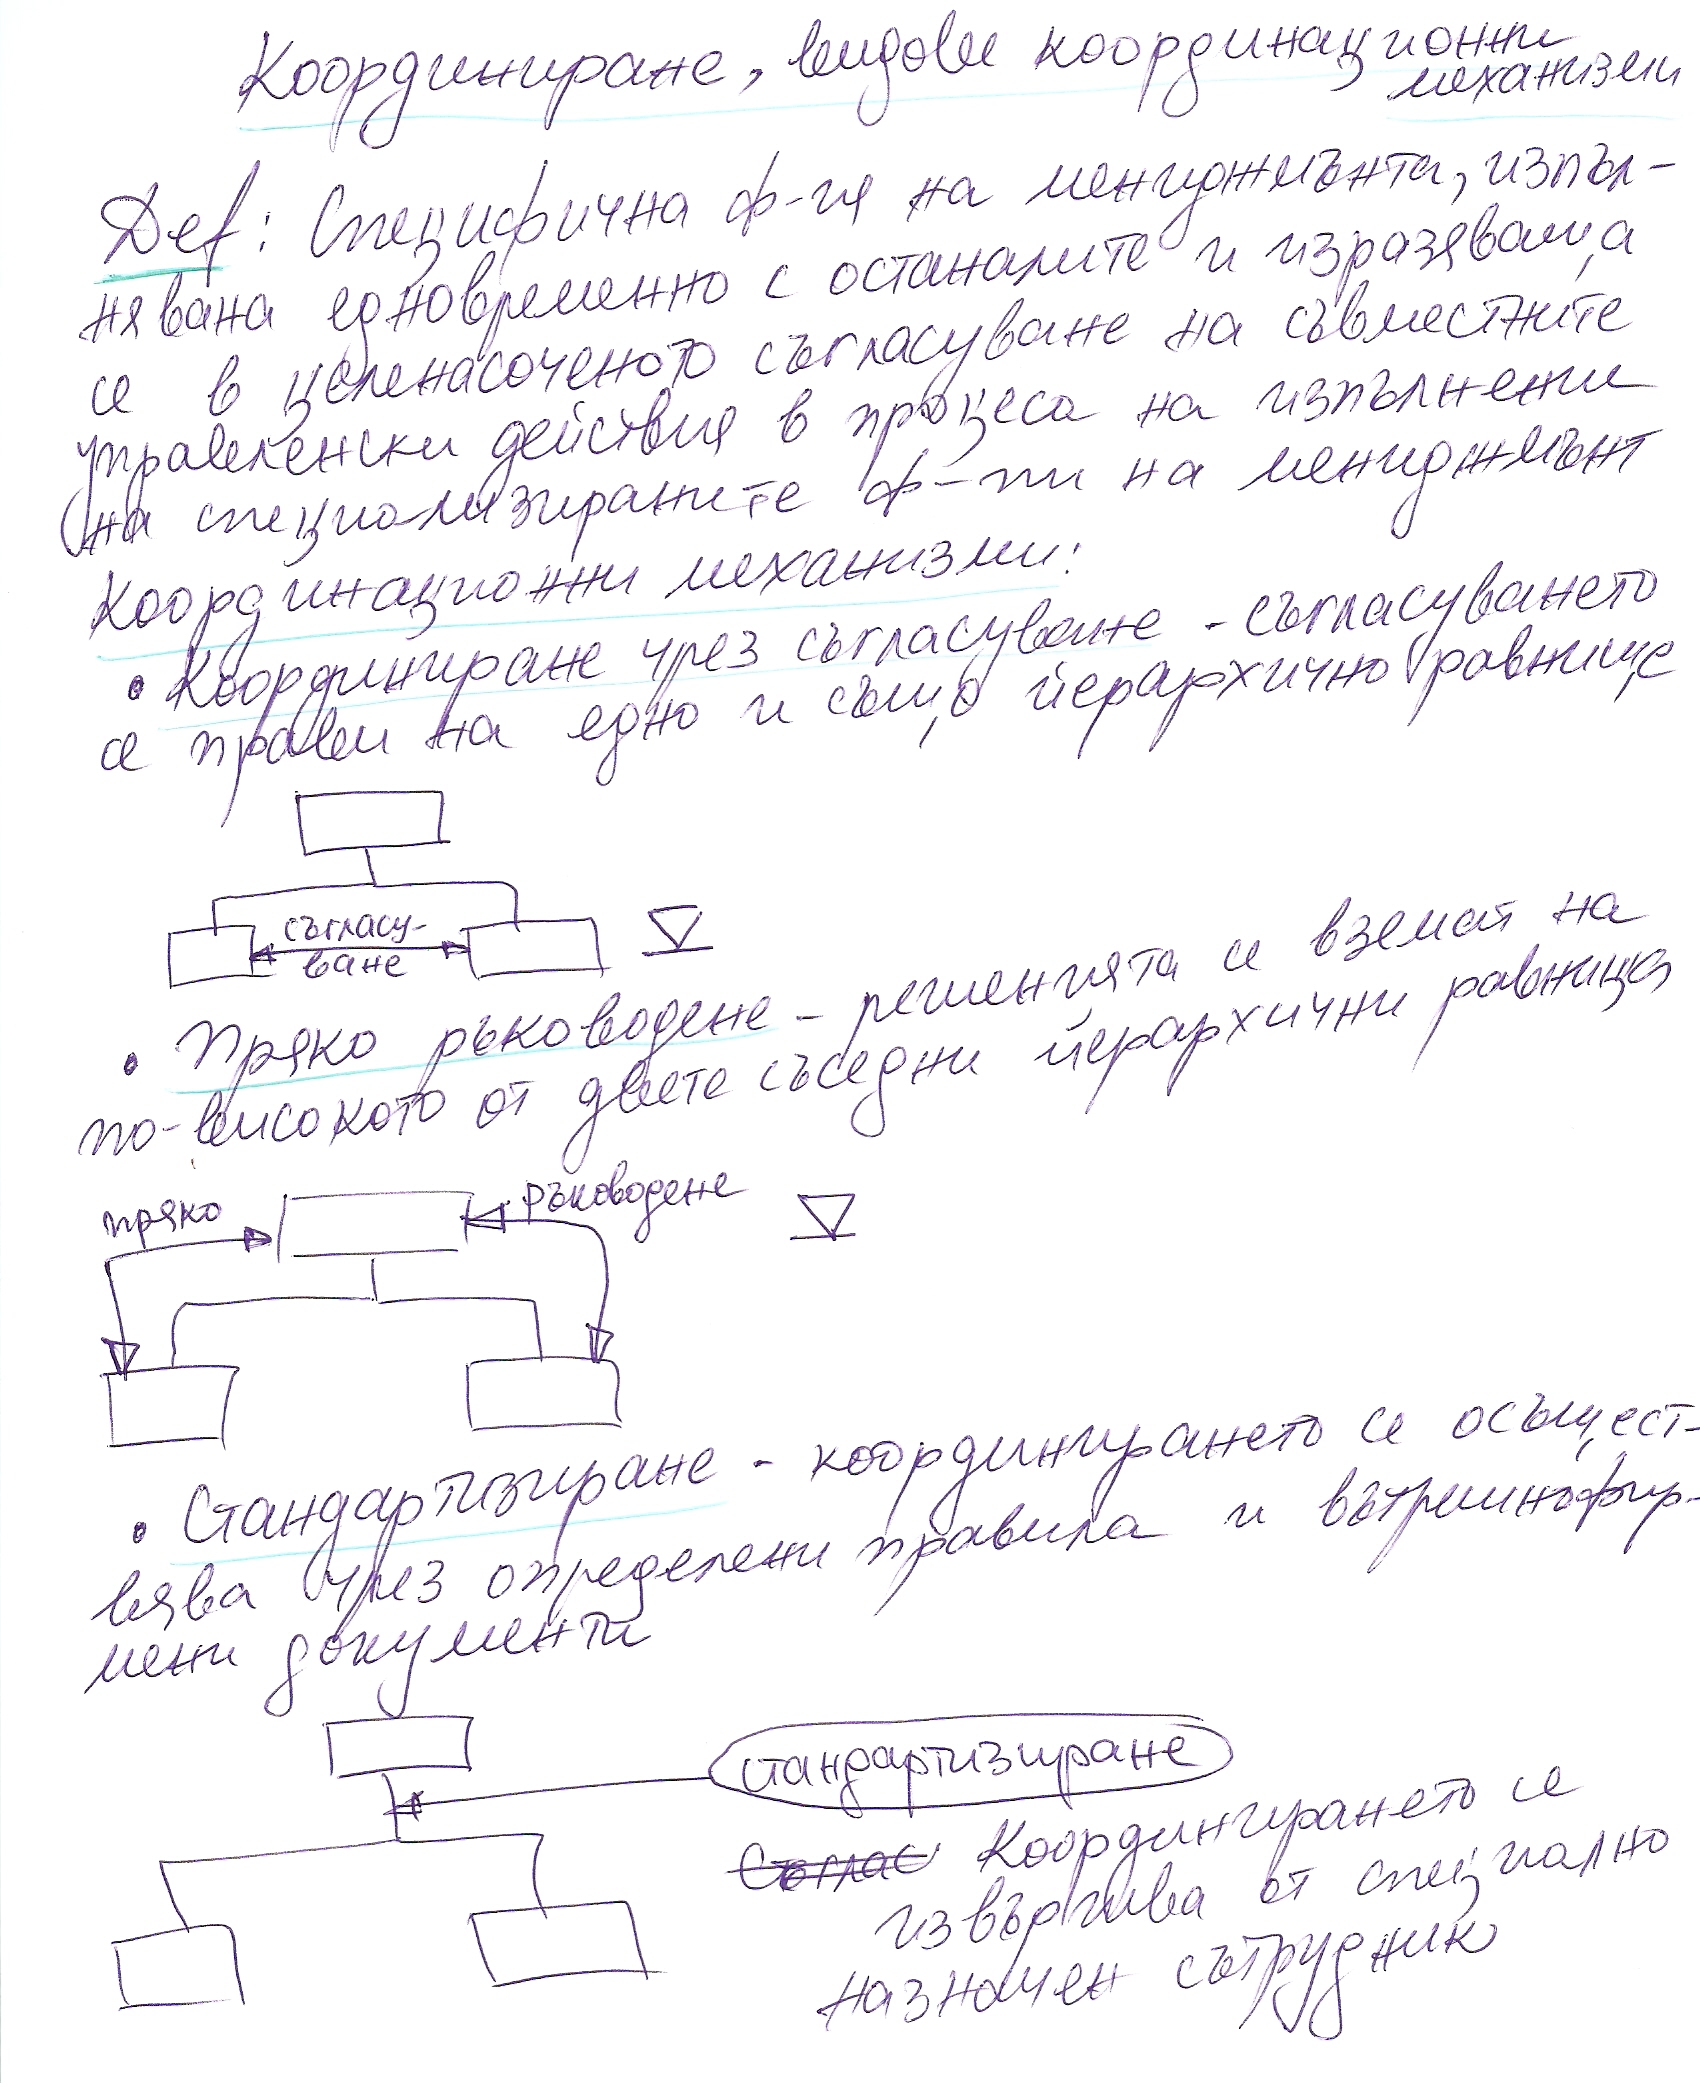 Координиране, видове координационни
механизми
Def: Специфична ф-ия на мениджмънта, изпъл-
нявана едновременно с останалите и изразяваща
се в целенасоченото съгласуване на съвместните
управленски действия в процеса на изпълнени
на специализираните ф-ии на мениджмънт
Координационни механизми:
• Координиране чрез съгласуване - съгласуването
се прави на едно и също йерархично равнище
съгласу-
ване
• Пряко ръководене - решенията се вземат на
по-високото от двете съседни йерархични равнища
пряко ръководене
• Стандартизиране - координирането се осъщест-
вява чрез определени правила и вътрешнофир-
мени документи
стандартизиране
Съглас Координирането се
извършва от специално
назначен сътрудник